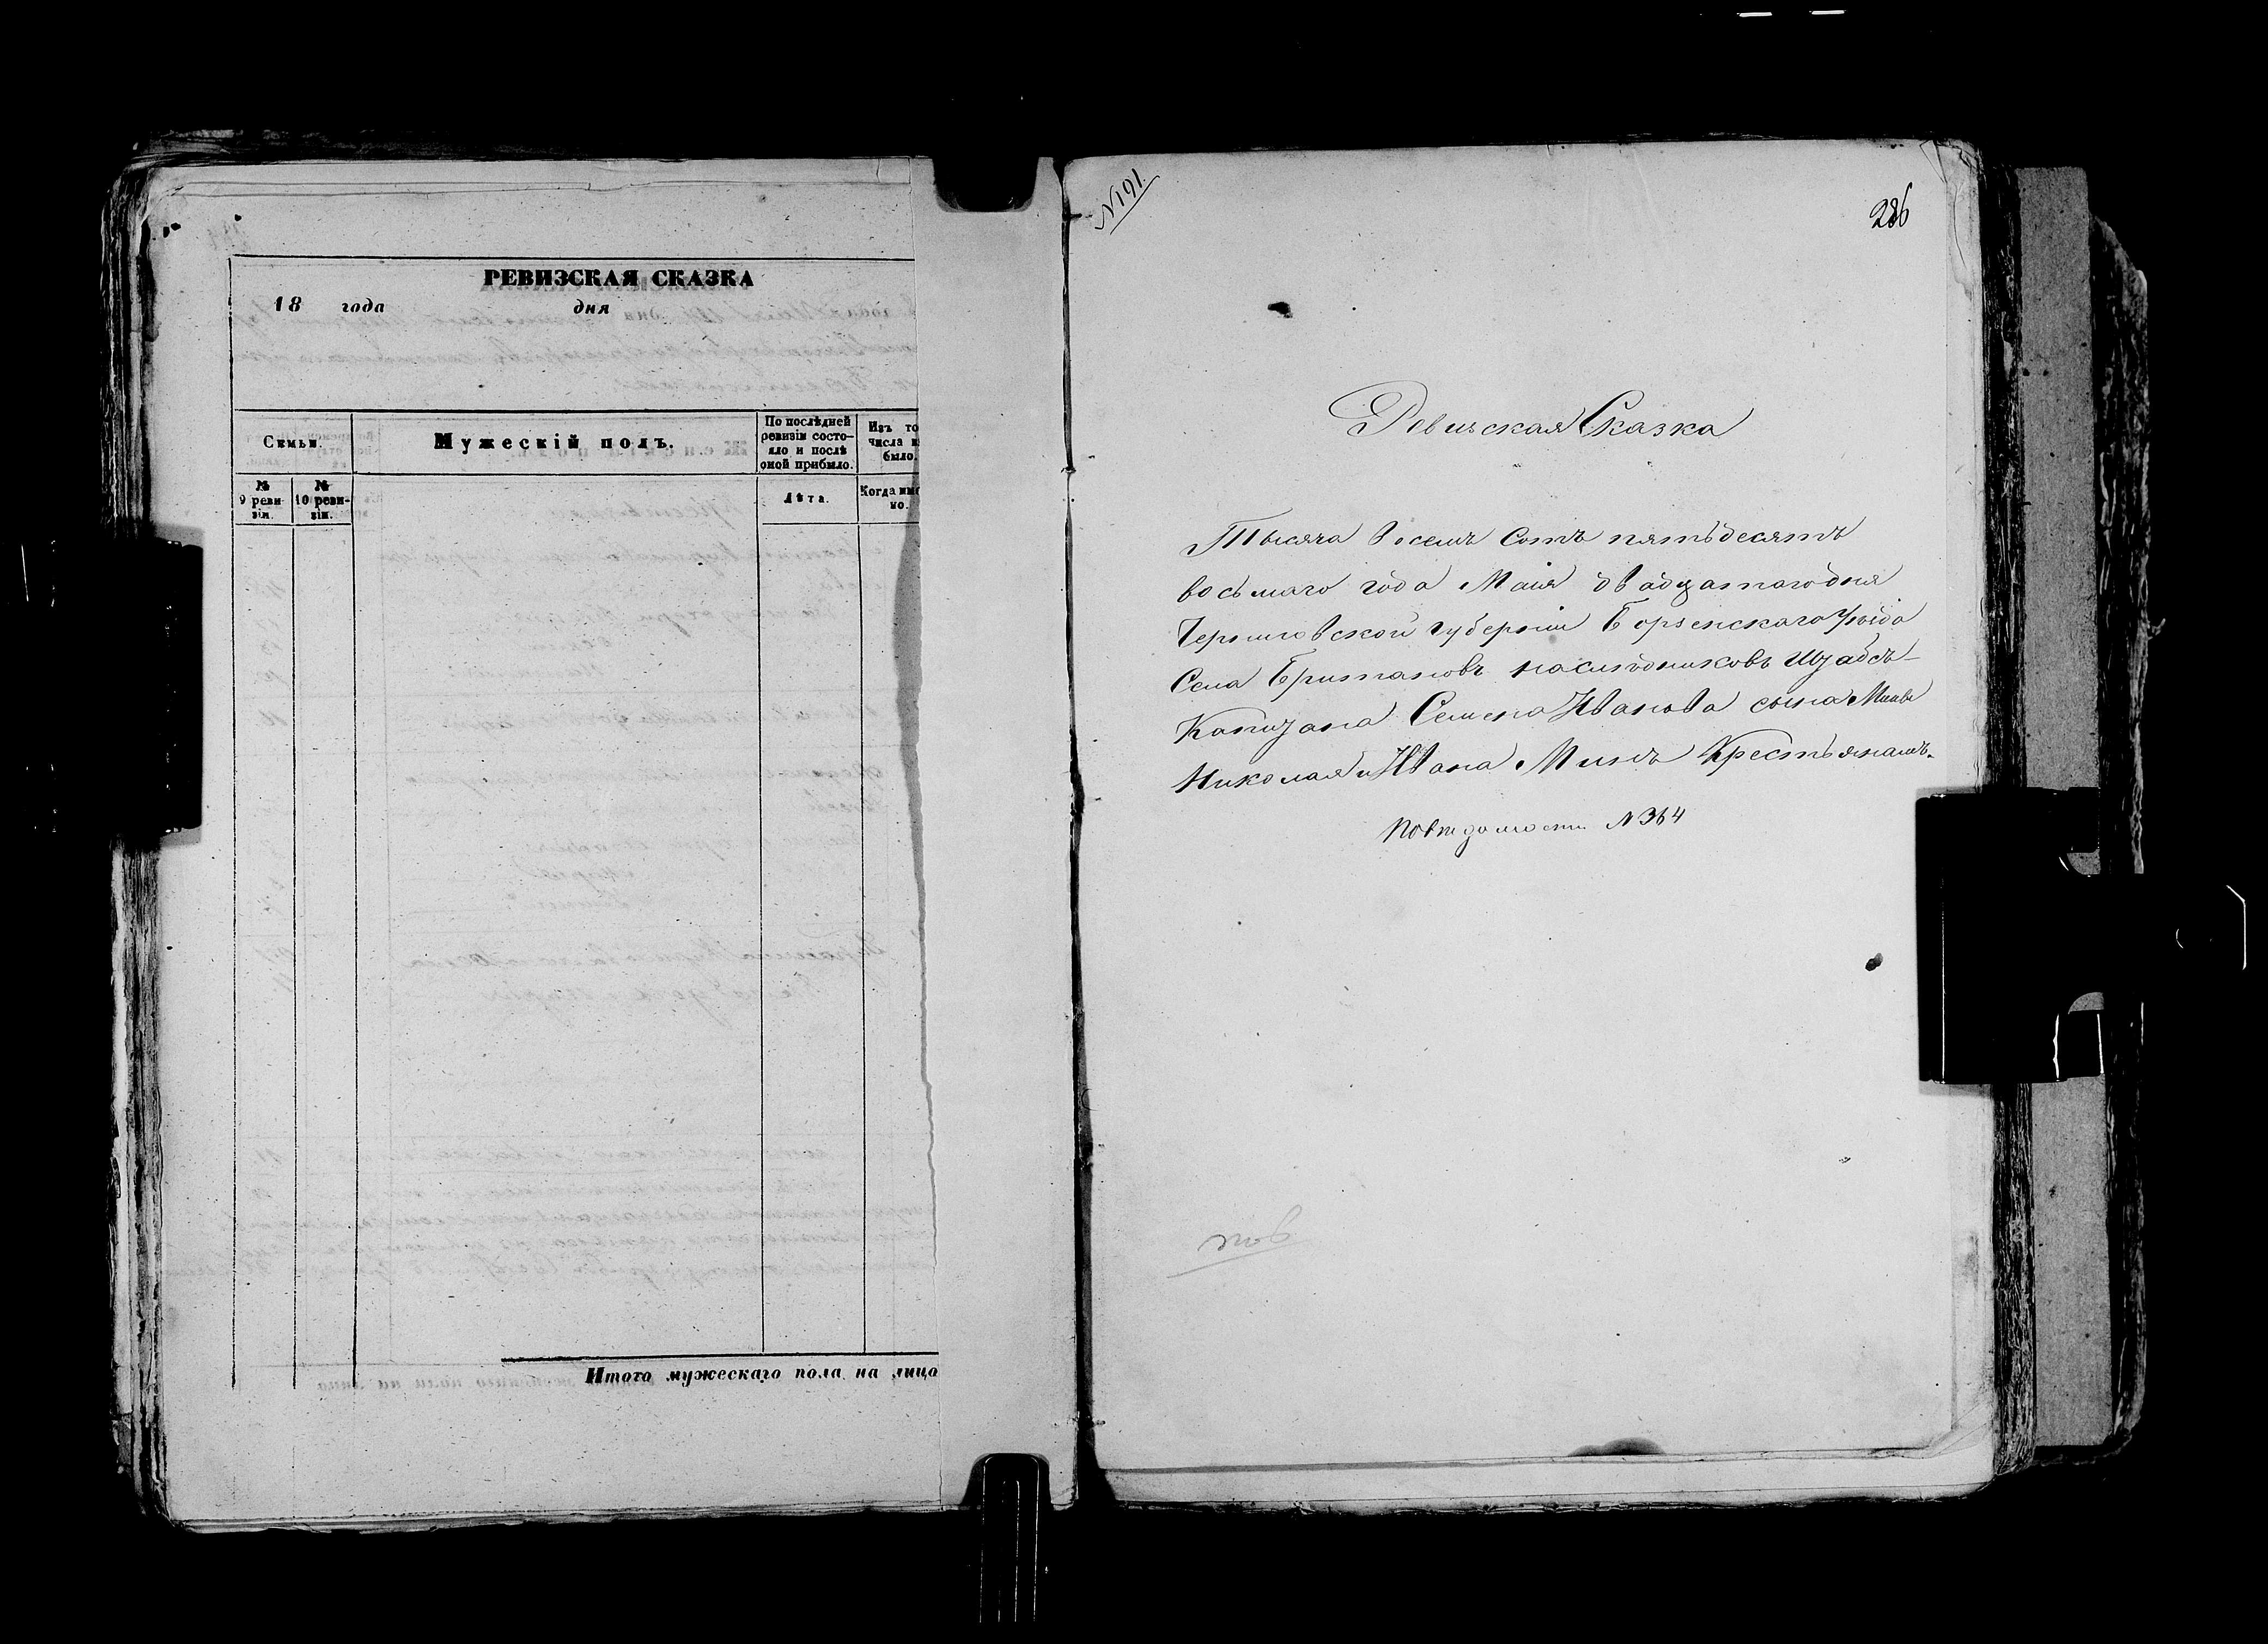 РЕВИЗСКАЯ СКАЗКА
18 года дня
Семьи.
Мужескій полъ.
По послѣдней ревизіи состояло и послѣ оной прибыло.
Изъ то числа было.
№ 9 ревизіи.
№ 10 ревизіи.
Лѣта.
Когда имено.
Итого мужескаго пола на лицо
N 191.
286
Ревизская Сказка
Тысяча восемь сотъ пятьдесятъ
восьмаго года Маія двадцатаго дня
Черниговской губерніи Борзенскаго Уѣзда
Села Британовъ наследниковъ Штабсъ-
Капитана Семена Иванова сына
Николая и Ивана Крестьянамъ.
По ведомости N 364